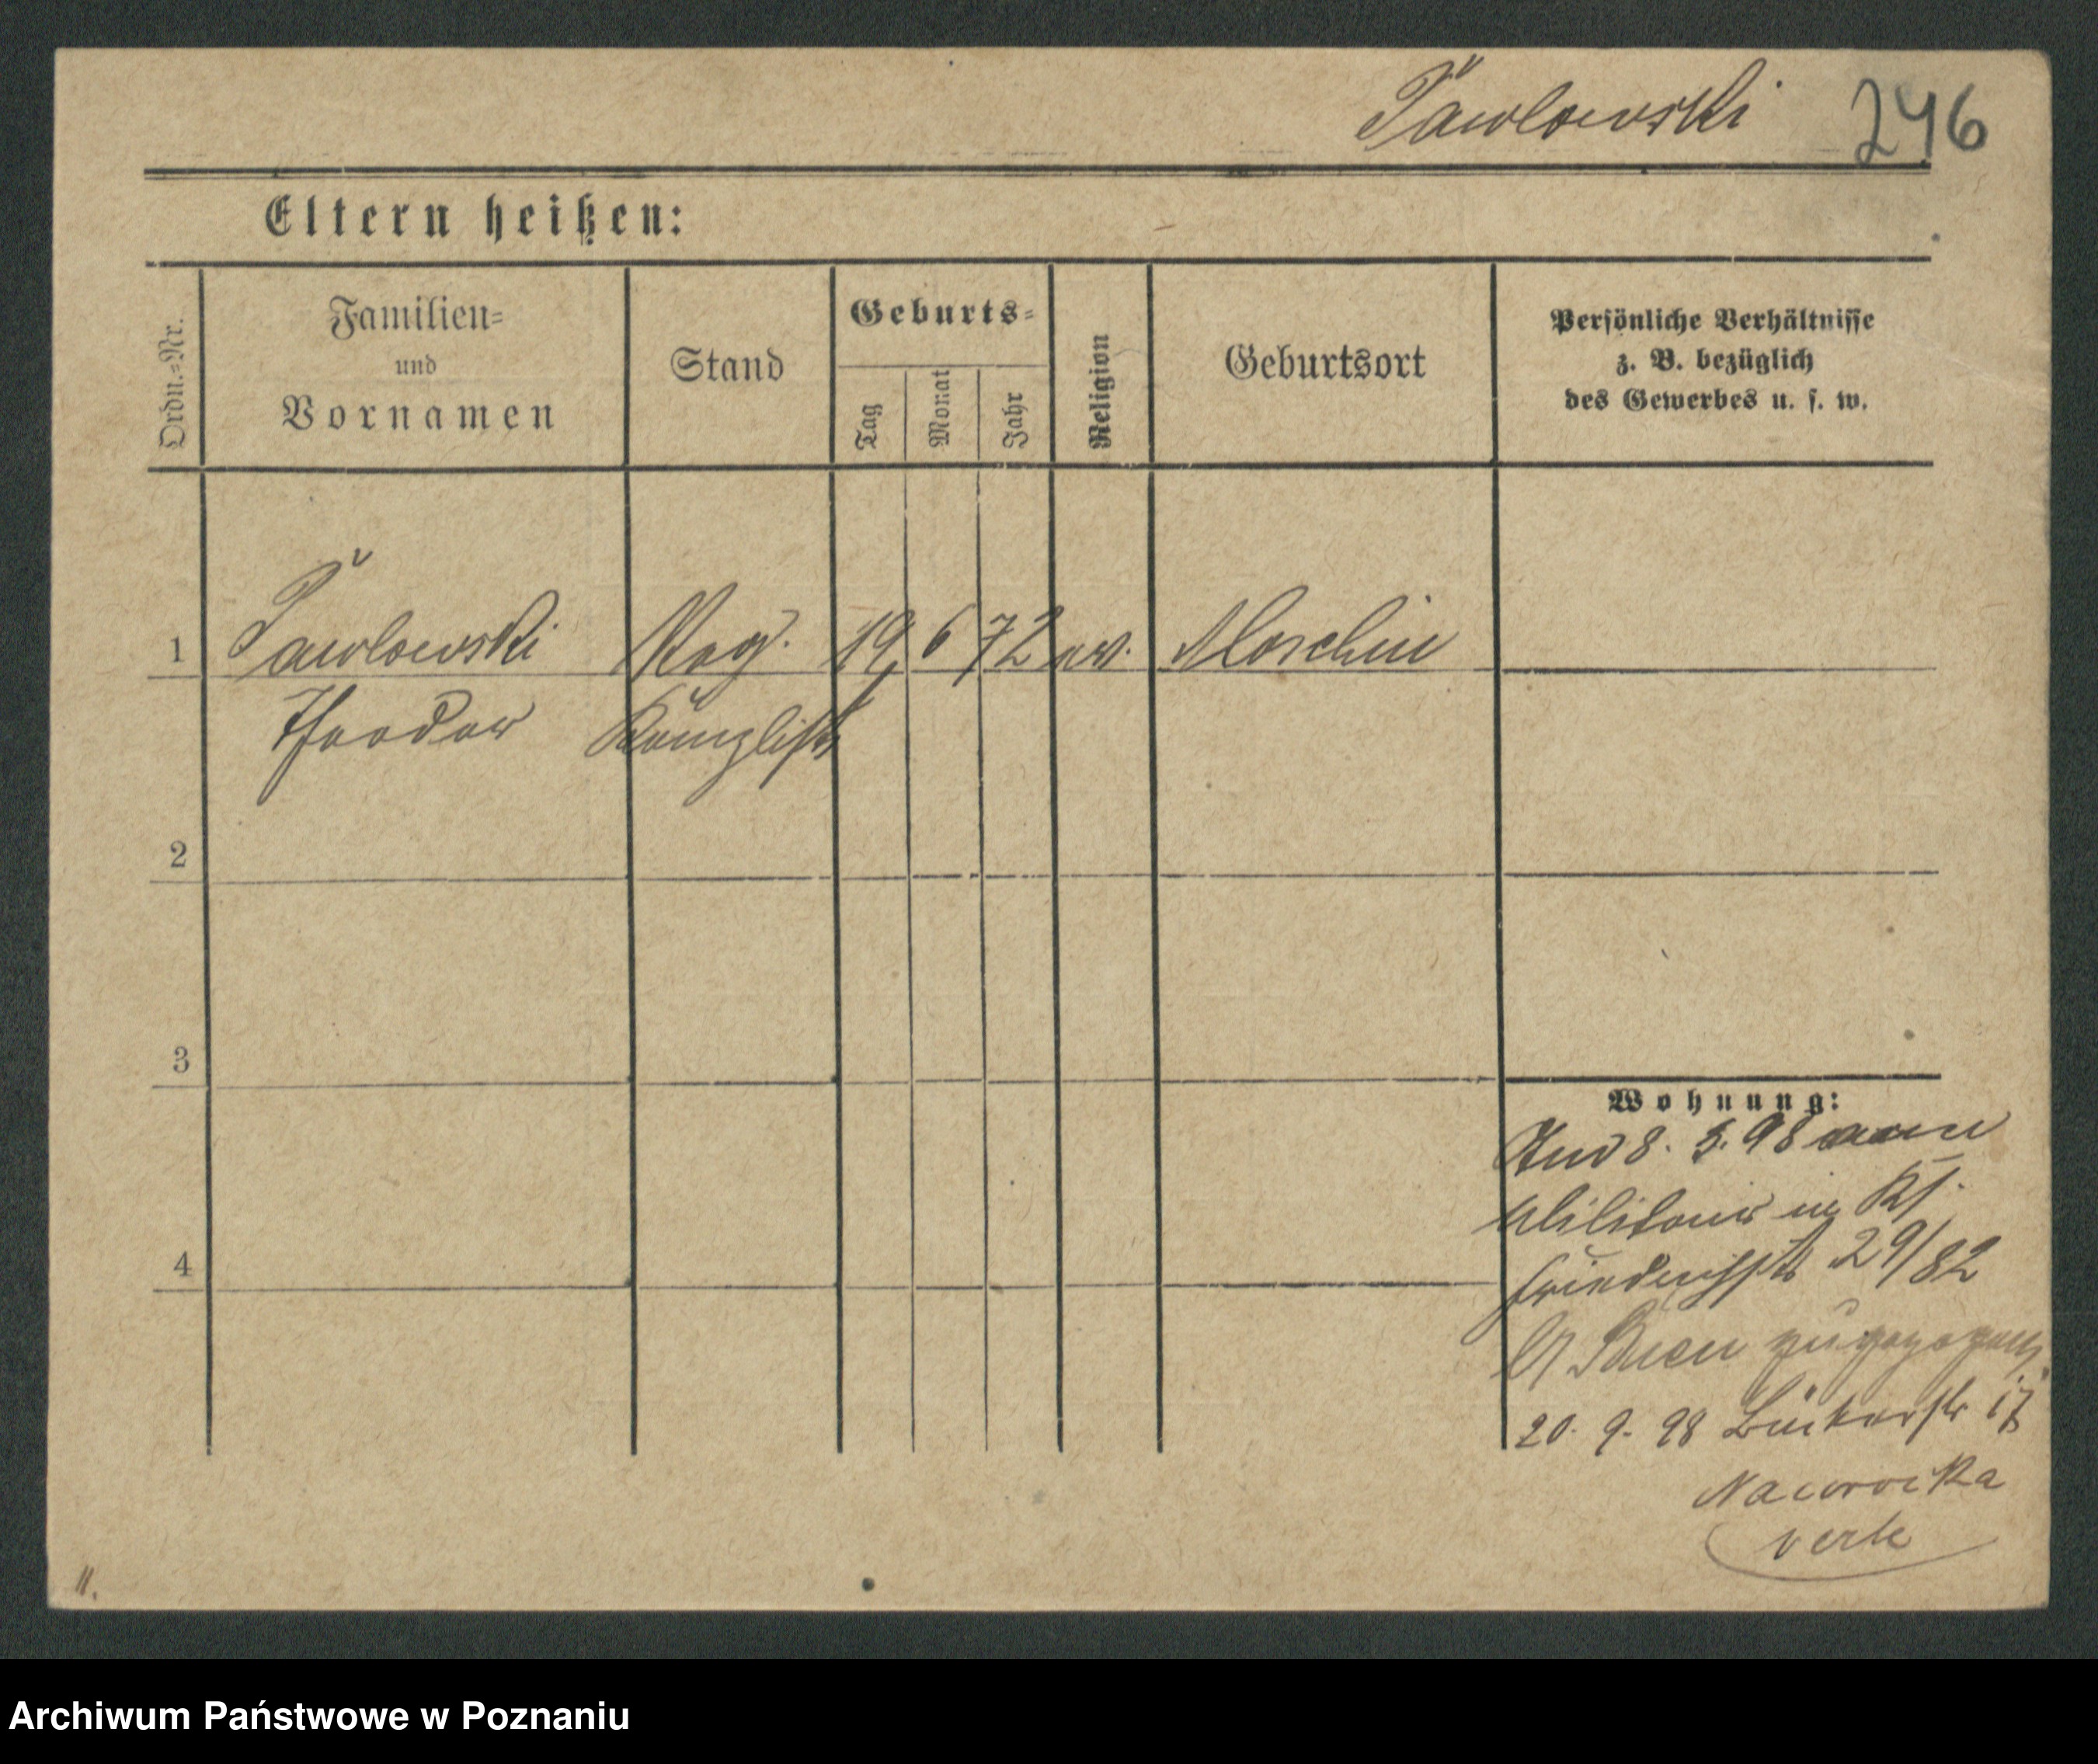 Pawlowski 246
Eltern heißen:
Ordn.-Nr.
Familien-
und
Vornamen
Stand
Geburts-
Tag
Monat
Jahr
Religion
Geburtsort
Persönliche Verhältnisse
z. B. bezüglich
des Gewerbes u. s. w.
1 Pawlowski Reg. 19 6 72 ev. Moschin
Theodor Kanzlist
2
3
4
Wohnung:
8. 3. 98
in
Friedrichstr 29/82
zugezogen
20. 9. 98 Bäckerstr 17
Nawrocka
verte
II.
Archiwum Państwowe w Poznaniu